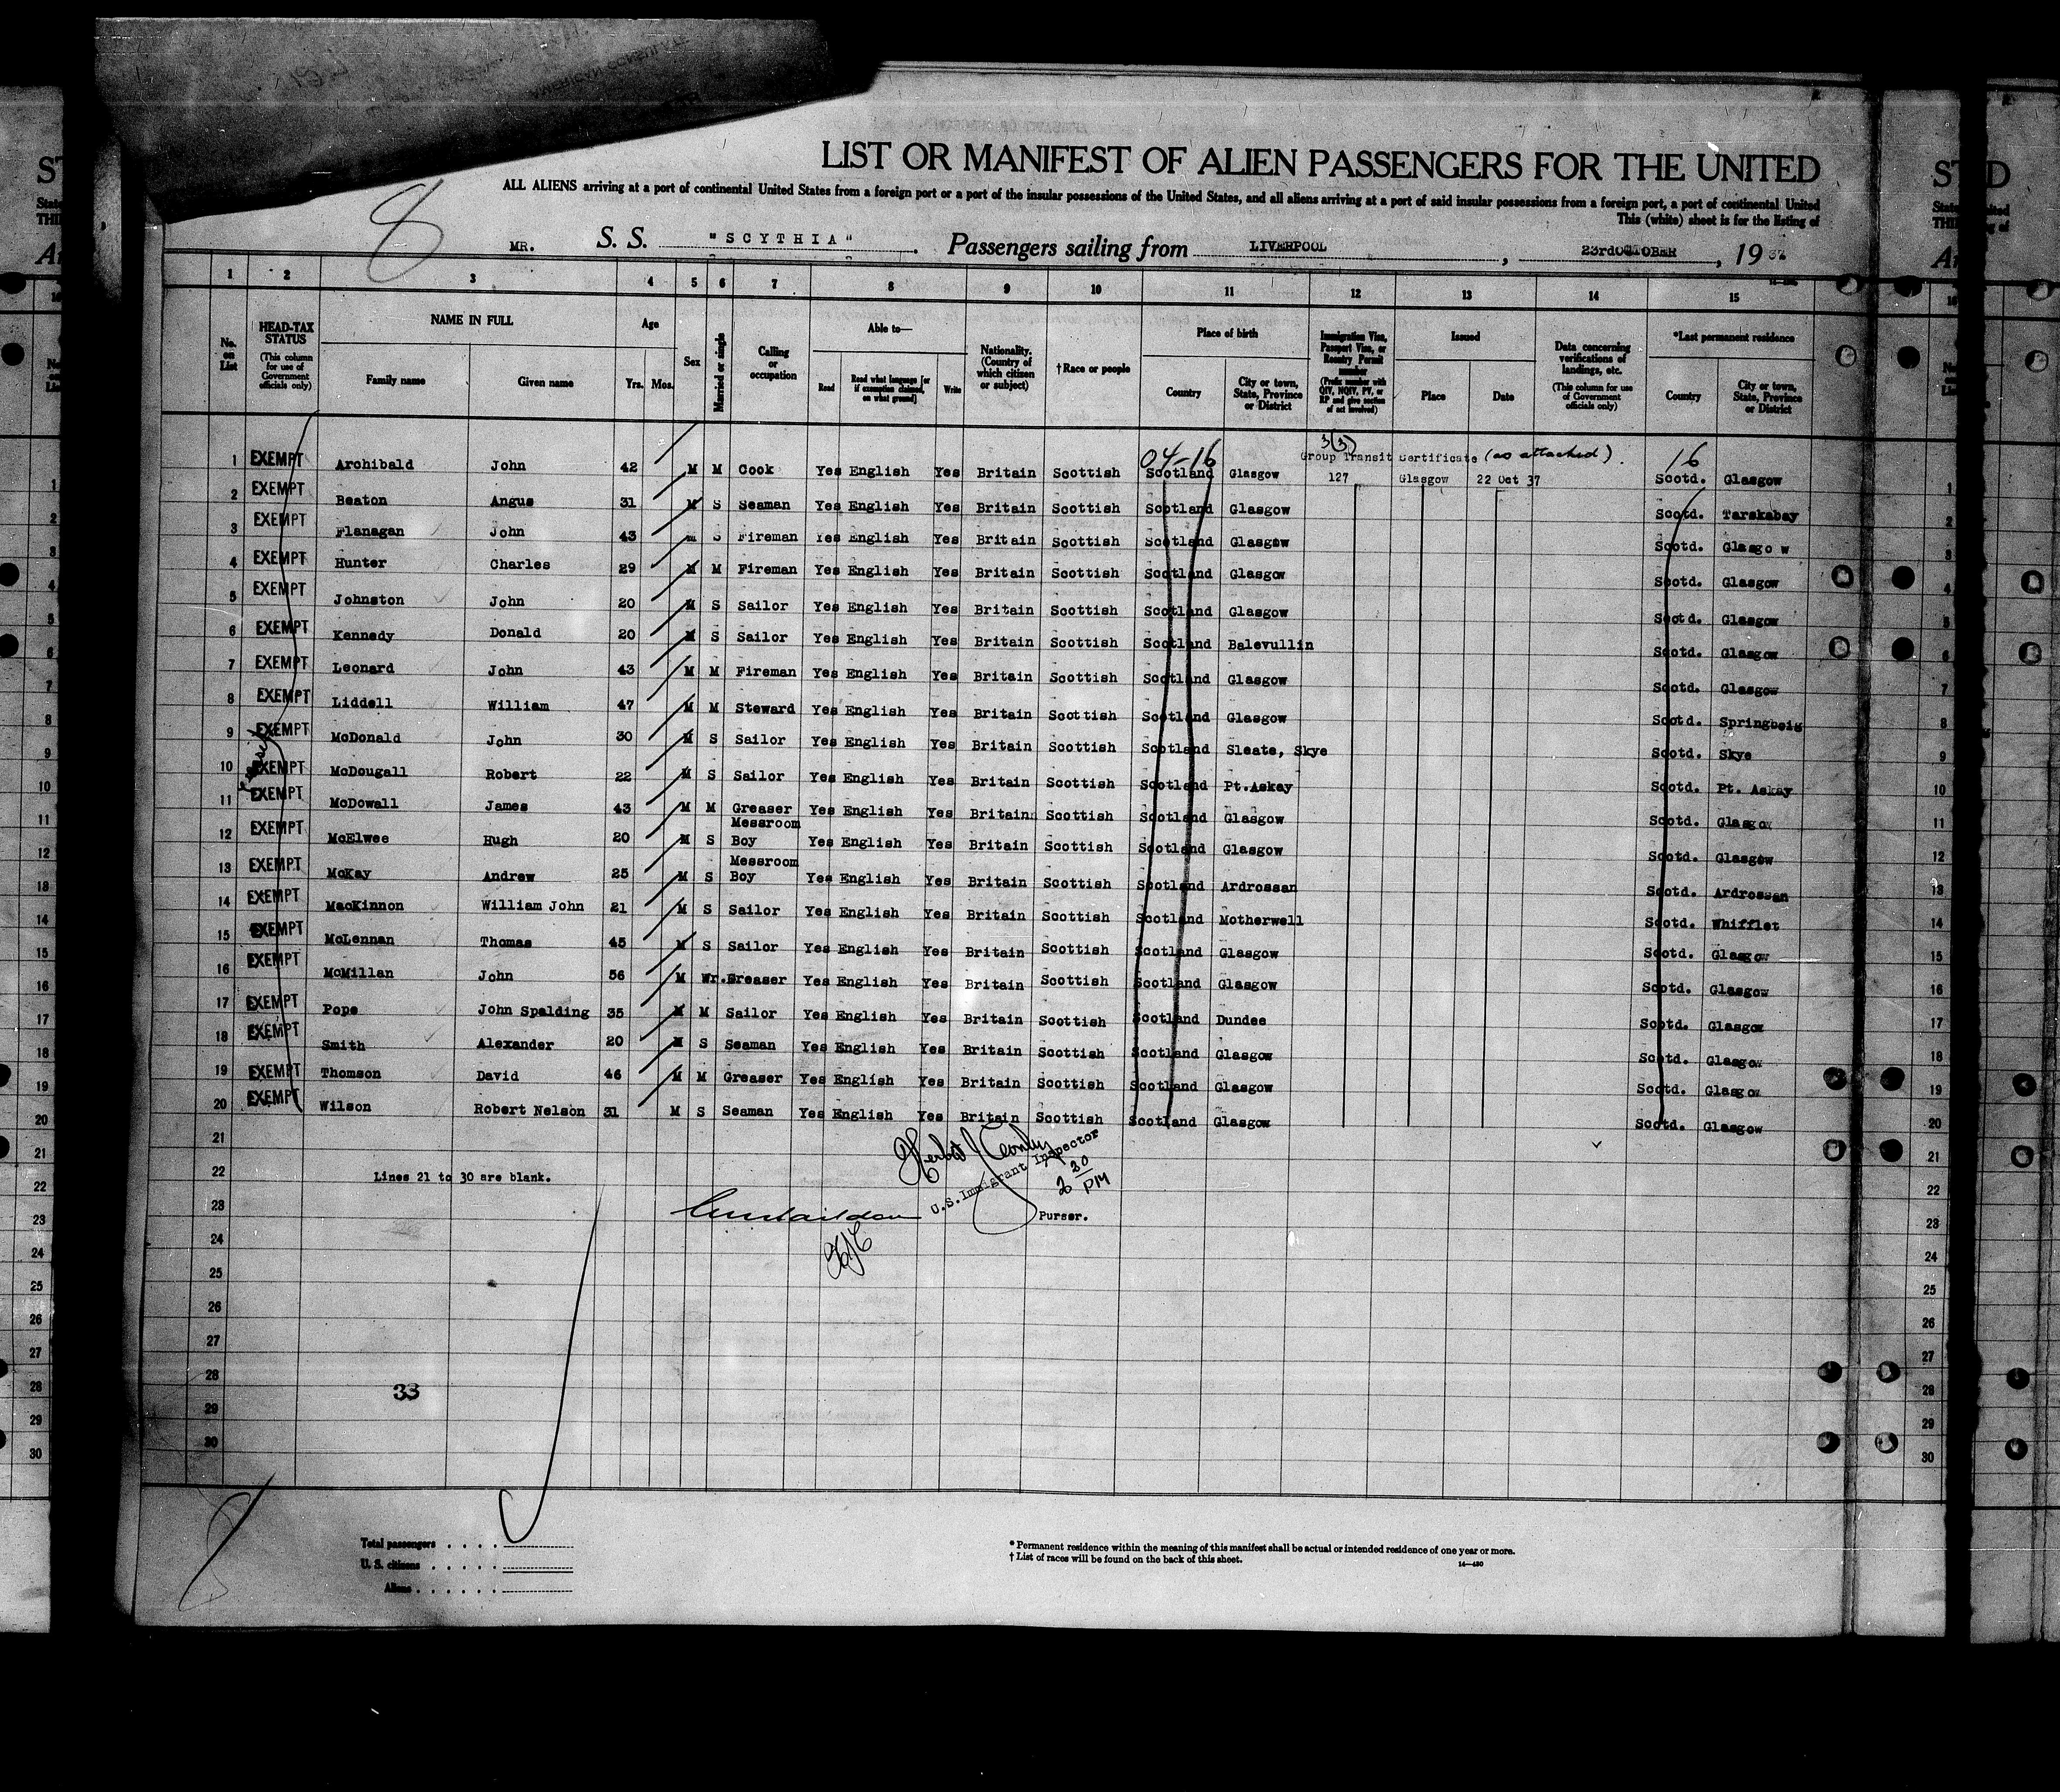 LIST OR MANIFEST OF ALIEN PASSENGERS FOR THE UNITED
ALL ALIENS arriving at a port of continental United States from a foreign port or a port of the insular possessions of the United States, and all aliens arriving at a port of said insular possessions from a foreign port, a port of continental United
This (white) sheet is for the listing of
8 MR. S. S. "SCYTHIA" Passengers sailing from LIVERPOOL, 23rdOCTOBER, 19 37
1 2 3 4 5 6 7 8 9 10 11 12 13 14 15
No. on List HEAD-TAX STATUS (This column for use of Government officials only) NAME IN FULL Family name Given name Age Yrs. Mos. Sex Married or single Calling or occupation Able to— Read Read what language [or if exemption claimed, on what ground] Write Nationality. (Country of which citizen or subject) †Race or people Place of birth Country City or town, State, Province or District Immigration Visa, Passport Visa, or Reentry Permit number (Prefix number with QIV, NQIV, PV, or RP and give section of act involved) Issued Place Date Data concerning verifications of landings, etc. (This column for use of Government officials only) *Last permanent residence Country City or town, State, Province or District
3(3)
04-16 Group Transit Certificate (as attached). 16
1 EXEMPT Archibald John 42 M M Cook Yes English Yes Britain Scottish Scotland Glasgow 127 Glasgow 22 Oct 37 Scotd. Glasgow
2 EXEMPT Beaton Angus 31 M S Seaman Yes English Yes Britain Scottish Scotland Glasgow Scotd. Tarskabay
3 EXEMPT Flanagan John 43 M S Fireman Yes English Yes Britain Scottish Scotland Glasgow Scotd. Glasgo w
4 EXEMPT Hunter Charles 29 M M Fireman Yes English Yes Britain Scottish Scotland Glasgow Scotd. Glasgow
5 EXEMPT Johnston John 20 M S Sailor Yes English Yes Britain Scottish Scotland Glasgow Scotd. Glasgow
6 EXEMPT Kennedy Donald 20 M S Sailor Yes English Yes Britain Scottish Scotland Balevullin Scotd. Glasgow
7 EXEMPT Leonard John 43 M M Fireman Yes English Yes Britain Scottish Scotland Glasgow Scotd. Glasgow
8 EXEMPT Liddell William 47 M M Steward Yes English Yes Britain Scottish Scotland Glasgow Scotd. Springboig
9 EXEMPT McDonald John 30 M S Sailor Yes English Yes Britain Scottish Scotland Sleate, Skye Scotd. Skye
10 EXEMPT McDougall Robert 22 M S Sailor Yes English Yes Britain Scottish Scotland Pt.Askay Scotd. Pt. Askay
11 EXEMPT McDowall James 43 M M Greaser Yes English Yes Britain Scottish Scotland Glasgow Scotd. Glasgow
12 EXEMPT McElwee Hugh 20 M S Messroom Boy Yes English Yes Britain Scottish Scotland Glasgow Scotd. Glasgow
13 EXEMPT McKay Andrew 25 M S Messroom Boy Yes English Yes Britain Scottish Scotland Ardrossan Scotd. Ardrossan
14 EXEMPT MacKinnon William John 21 M S Sailor Yes English Yes Britain Scottish Scotland Motherwell Scotd. Whifflet
15 EXEMPT McLennan Thomas 45 M S Sailor Yes English Yes Britain Scottish Scotland Glasgow Scotd. Glasgow
16 EXEMPT McMillan John 56 M Wr. Greaser Yes English Yes Britain Scottish Scotland Glasgow Scotd. Glasgow
17 EXEMPT Pope John Spalding 35 M M Sailor Yes English Yes Britain Scottish Scotland Dundee Scotd. Glasgow
18 EXEMPT Smith Alexander 20 M S Seaman Yes English Yes Britain Scottish Scotland Glasgow Scotd. Glasgow
19 EXEMPT Thomson David 46 M M Greaser Yes English Yes Britain Scottish Scotland Glasgow Scotd. Glasgow
20 EXEMPT Wilson Robert Nelson 31 M S Seaman Yes English Yes Britain Scottish Scotland Glasgow Scotd. Glasgow
21
22 Lines 21 to 30 are blank. U.S. Immigrant Inspector 2 30 PM
23 Purser.
24
25
26
27
28 33
29
30
Total passengers . . . .
U. S. citizens . . . . .
Aliens . . . . . .
* Permanent residence within the meaning of this manifest shall be actual or intended residence of one year or more.
† List of races will be found on the back of this sheet.
14—430